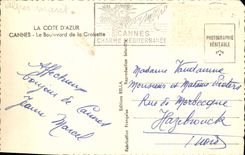 LA COTE D'AZUR
CANNES - Le Boulevard de la Croisette
CANNES
CHARME MEDITERRANEE
PHOTOGRAPHIE
VÉRITABLE
Editions RELLA
Affectueux
bonjour de Cannes
Jeanne Marcel
Madame Vandamme
Monsieur et Madame
Rue de Merbecque
Hazebrouck
(Nord)